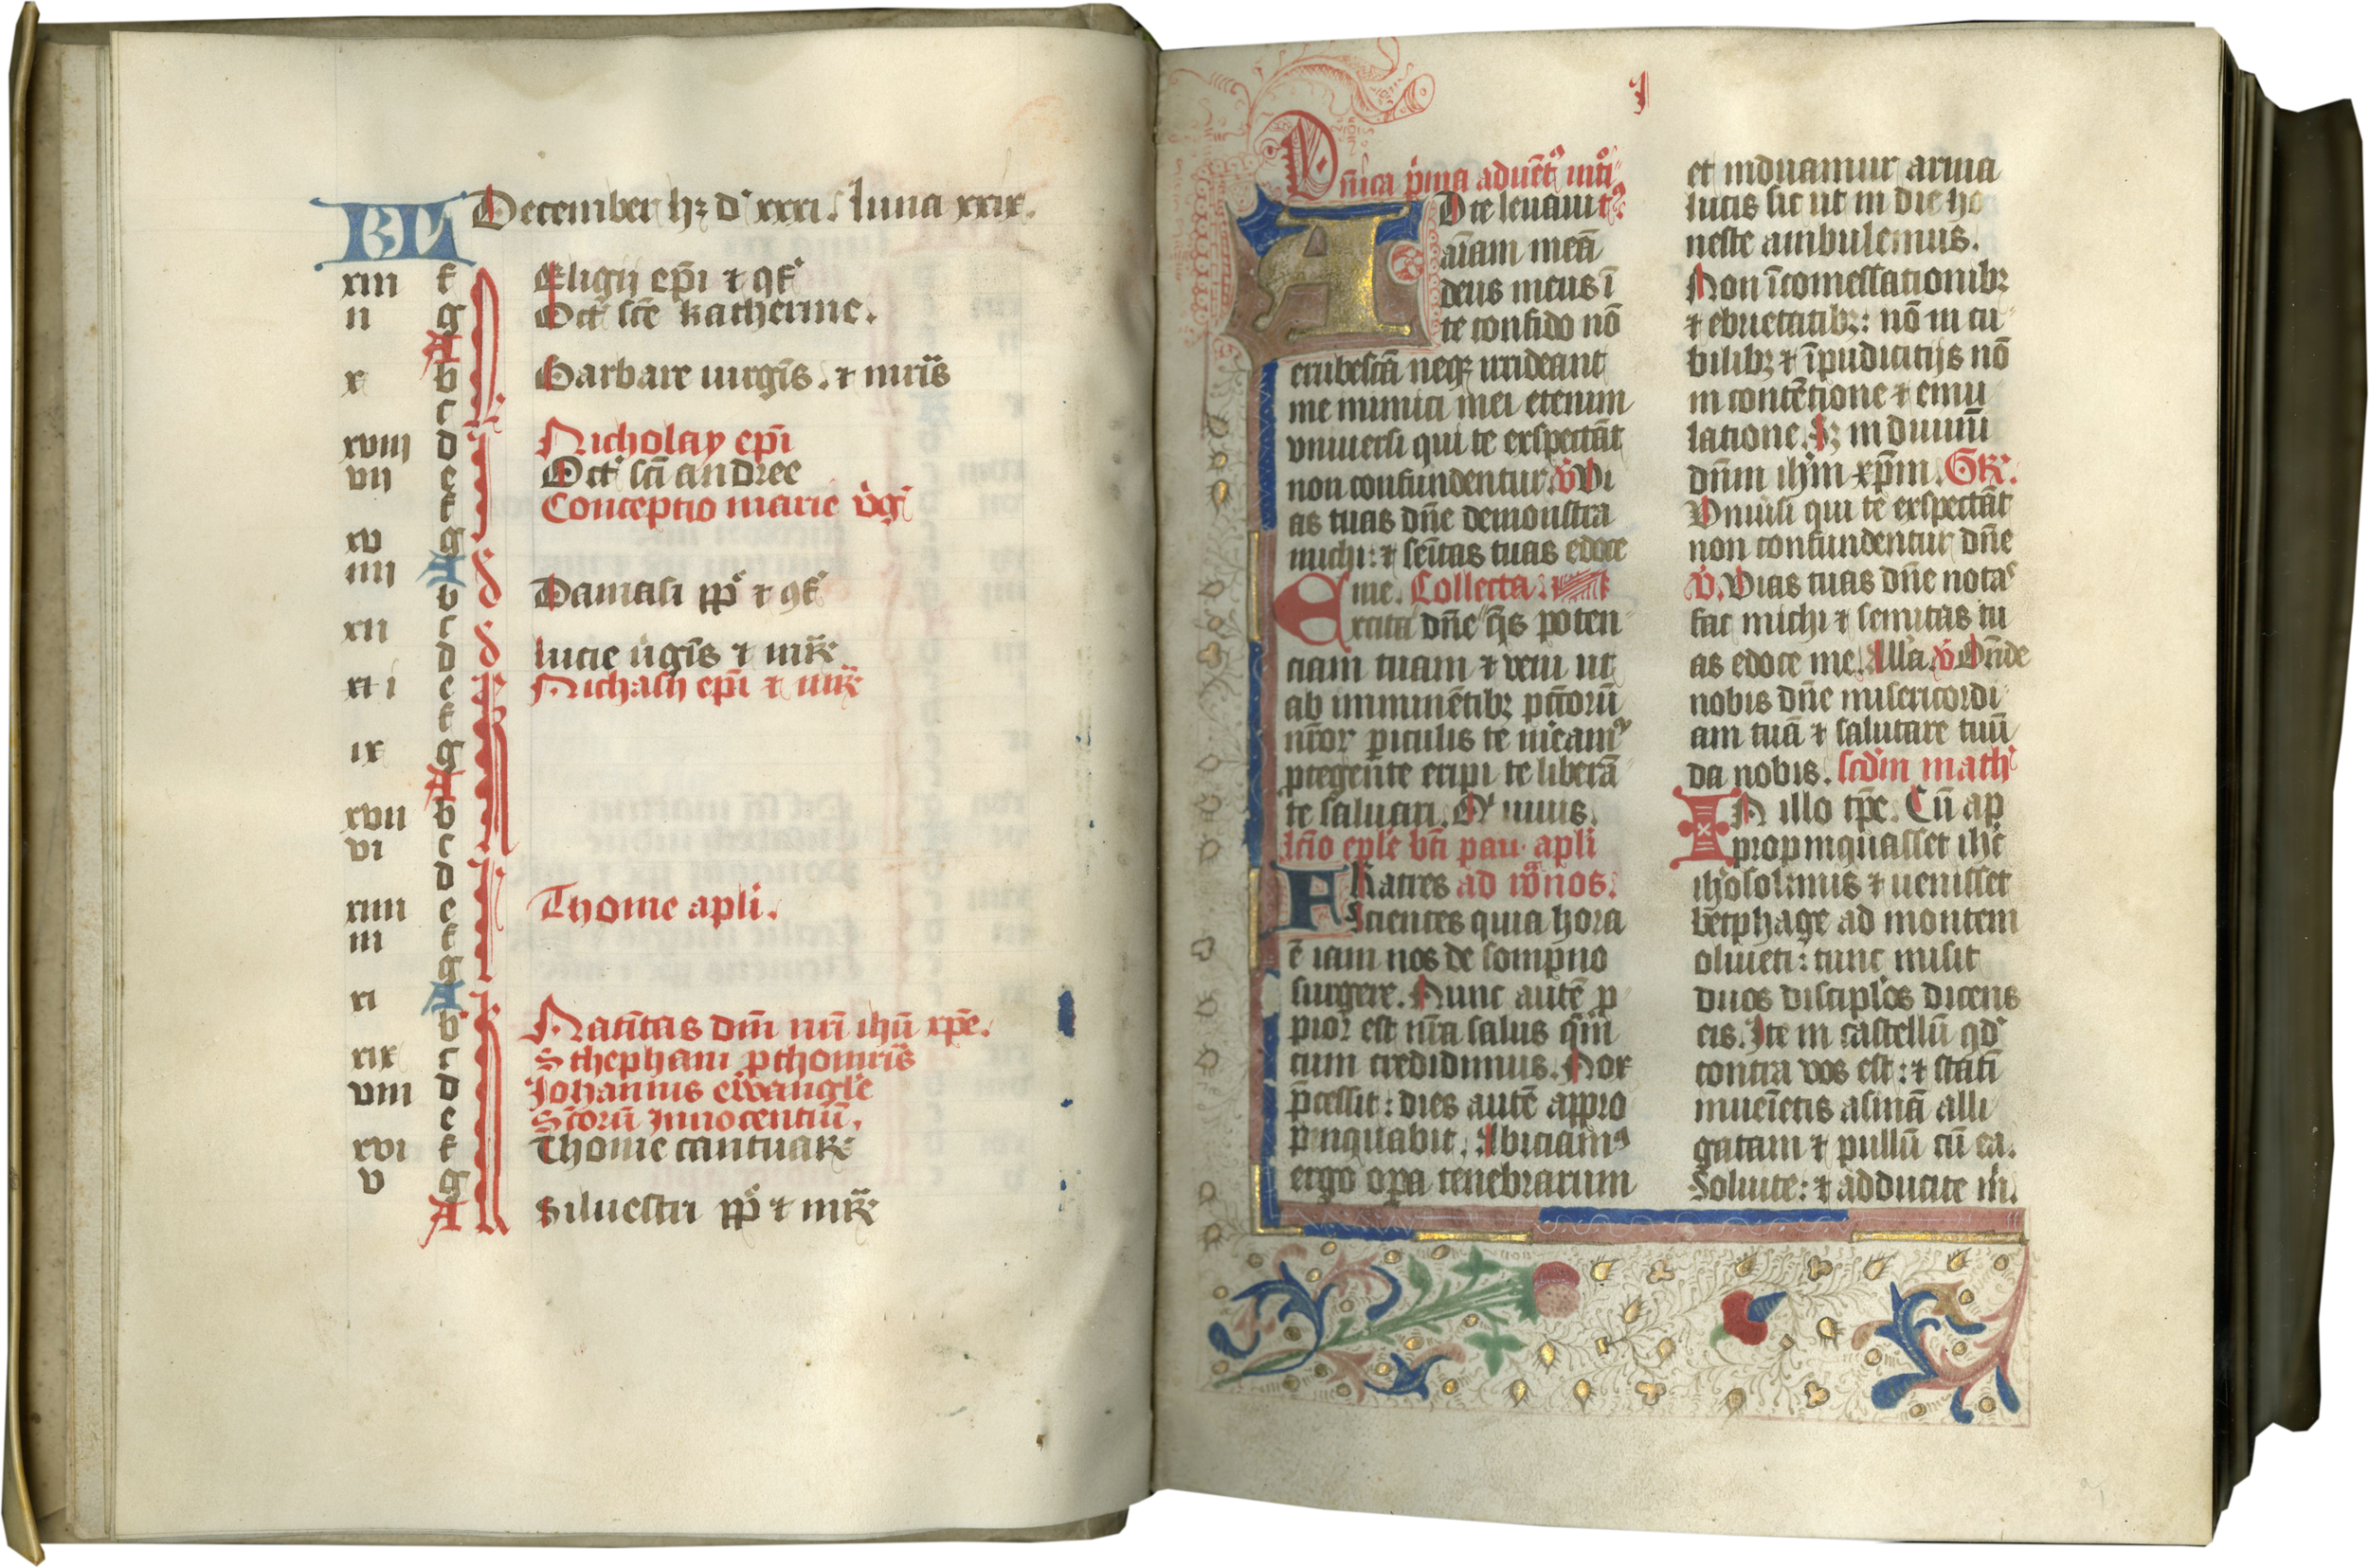 KL December hȝ dˢ xxxi. luna xxix.
xiii f Eligii ep̄i ⁊ ꝯfˢ
ii g Octˢ sc̄e katherine.
A
x b Barbare uirgīs. ⁊ mr̄is
c
xviii d Nicholay ep̄i
vii e Octˢ sc̄i andree
f Conceptio marie v̄gˢ
xv g
iiii A
b Damasi pp̄ ⁊ ꝯfˢ
xii c
d lucie ūgīs ⁊ mr̄
e Nichasii ep̄i ⁊ mr̄
f
ix g
A
xvii b
vi c
d
xiiii e Thome apl̄i.
iii f
g
xi A
b Natīitas dn̄i nr̄i ihū xp̄e.
xix c Sthephani ꝓthomr̄is
viii d Johannis ewāngl̄e
e Sc̄torū Innocentiū.
xvi f Thome cantuar̄
v g
A Siluestri pp̄ ⁊ mr̄
I
Dn̄ica p̄ma aduētˢ
AD te leuaui
aīam meā
deus meus ī
te confido nō
erubescā neqȝ irrideant
me inimici mei etenim
vniuersi qui te exspectāt
non confundentur. v̄ Vi
as tuas dn̄e demonstra
michi: ⁊ sēitas tuas edoce
me. Collecta.
Excita dn̄e q̄s poten
ciam tuam ⁊ veni ut
ab imminētibȝ pc̄c̄orū
nr̄oꝝ ꝑiculis te m̄eamꝰ
ꝓtegente eripi te liberā
te saluari. Q̄ uiuis.
lc̄io ep̄le bt̄i pau. apl̄i
FRatres ad rōnos.
Scientes quia hora
ē iam nos de sompno
surgere. Nunc autē ꝓ
piorˢ est nr̄a salus q̄m
cum credidimus. Nox
p̄cessit: dies autē appro
pinquabit. Abiciamꝰ
ergo oꝑa tenebrarum
et induamur arma
lucis sic ut in die ho
neste ambulemus.
Non ī comessationibȝ
⁊ ebrietatibȝ: nō in cu
bilibȝ ⁊ īpudicitiis nō
in contētione ⁊ emu
latione. Sȝ induim̄
dn̄m ihm̄ xp̄m. Gr̄.
Vniūsi qui te exspectāt
non confundentur dn̄e
v̄. Vias tuas dn̄e notaˢ
fac michi ⁊ semitas tu
as edoce me. All̄a. v̄ Ostn̄de
nobis dn̄e misericordi
am tuā ⁊ salutare tuū
da nobis. scd̄m mathˢ
IN illo tp̄e. Cū ap
propinquasset ihē
ihōsolimis ⁊ uenisset
betphage ad montem
oliueti: tunc misit
duos discipl̄os dicens
eis. Ite in castellū qd̄
contra vos est: ⁊ statī
inueīetis asinā alli
gatam ⁊ pullū cū ea.
Soluite: ⁊ adducite m̄.